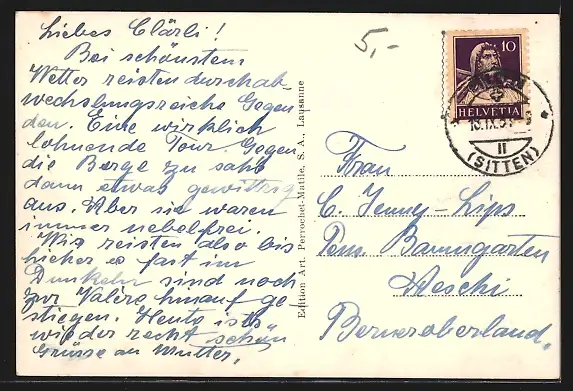 Liebes Clärli!
Bei schönstem
Wetter reisten durch ab-
wechslungsreiche Gegen
den. Eine wirklich
lohnende Tour. Gegen
die Berge zu sah's
dann etwas gewittrig
aus. Aber sie waren
immer nebelfrei.
Wir reisten also bis
hieher & fast im
Dunkeln sind noch
zur Valère hinauf ge-
stiegen. Heute ist's
wieder recht schön
Grüsse an Mutter.
Edition Art. Perrochet-Matile, S. A., Lausanne
5,-
10
HELVETIA
II
(SITTEN)
Frau
C. Jenny-Lips
Pens. Baumgarten
Aeschi
Berneroberland.